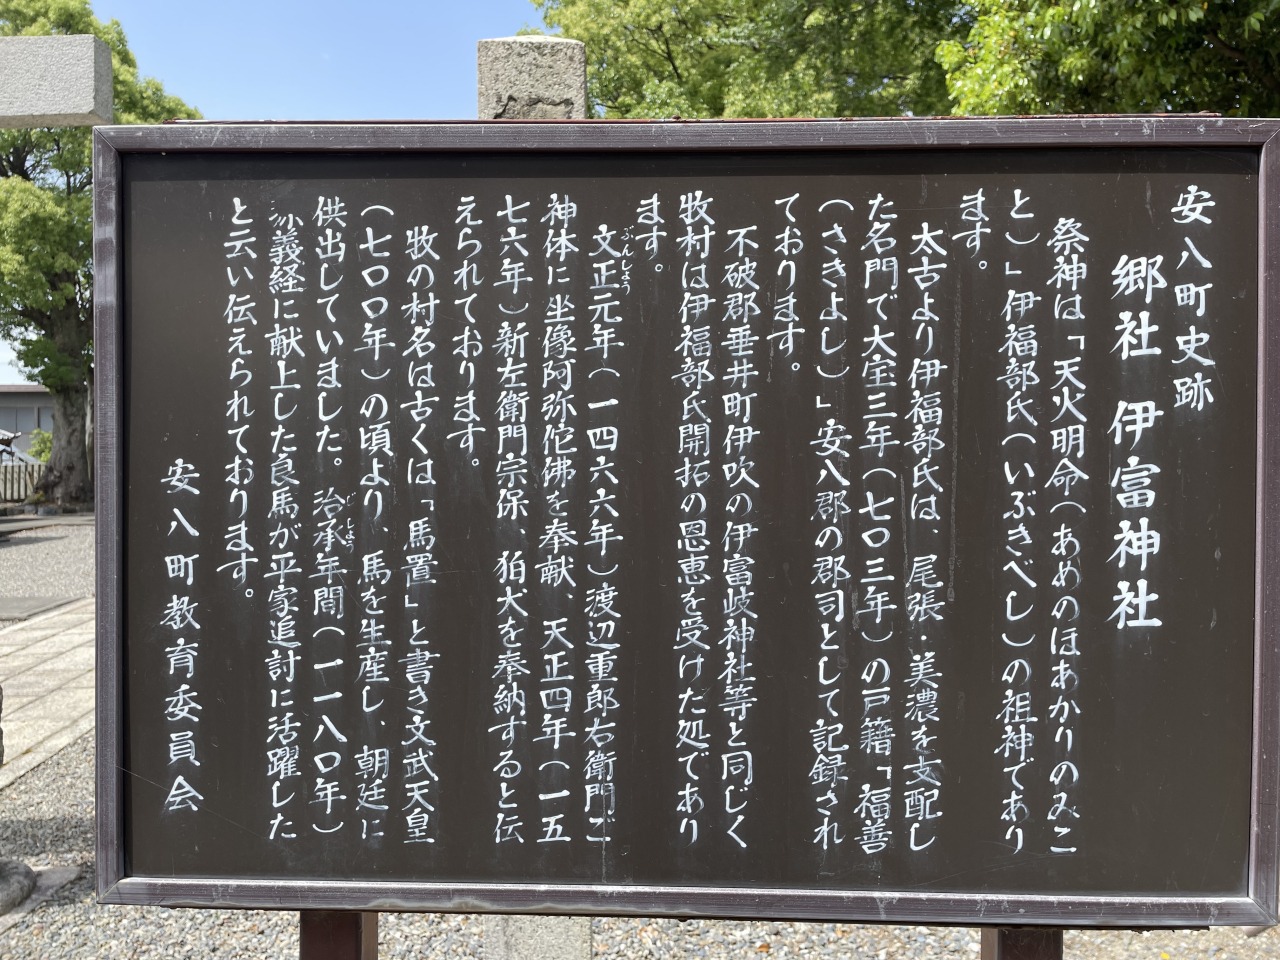 安八町史跡
郷社 伊富神社
祭神は「天火明命(あめのほあかりのみこ
と)」伊福部氏(いぶきべし)の祖神であり
ます。
太古より伊福部氏は、尾張・美濃を支配し
た名門で大宝三年(七〇三年)の戸籍「福善
(さきよし)」安八郡の郡司として記録され
ております。
不破郡垂井町伊吹の伊富岐神社等と同じく
牧村は伊福部氏開拓の恩恵を受けた処であり
ます。
文正元年(一四六六年)渡辺重郎右衛門ご
ぶんしょう
神体に坐像阿弥陀佛を奉献、天正四年(一五
七六年)新左衛門宗保、狛犬を奉納すると伝
えられております。
牧の村名は古くは「馬置」と書き文武天皇
(七〇〇年)の頃より、馬を生産し、朝廷に
供出していました。治承年間(一一八〇年)
じしょう
義経に献上した良馬が平家追討に活躍した
と云い伝えられております。
安八町教育委員会